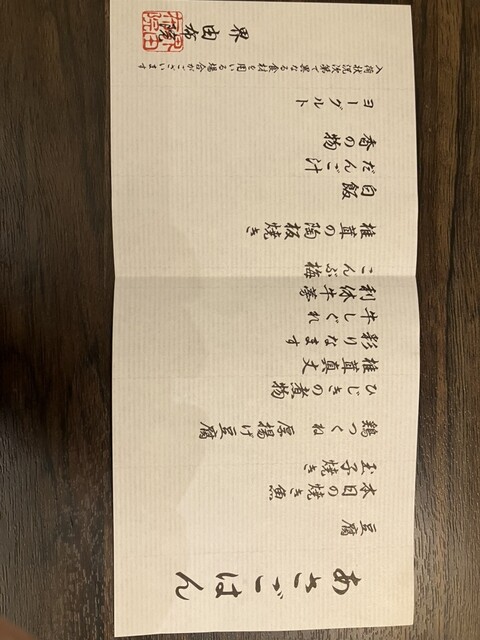 あさごはん
豆腐
本日の焼き魚
玉子焼き
鶏つくね 厚揚げ豆腐
ひじきの煮物
椎茸真丈
彩りなます
牛しぐれ
利休牛蒡
こんぶ梅
椎茸の陶板焼き
白飯
だんご汁
香の物
ヨーグルト
入荷状況次第で異なる食材を用いる場合がございます
界 由布院